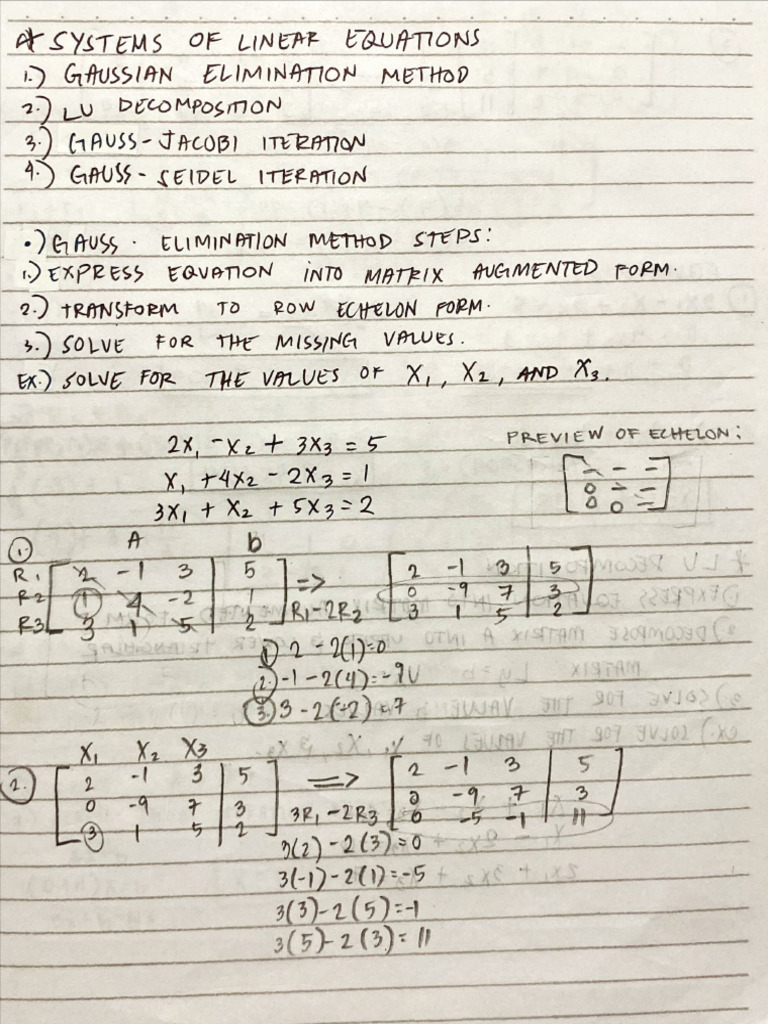 * SYSTEMS OF LINEAR EQUATIONS
1.) GAUSSIAN ELIMINATION METHOD
2.) LU DECOMPOSITION
3.) GAUSS-JACOBI ITERATION
4.) GAUSS-SEIDEL ITERATION
•) GAUSS. ELIMINATION METHOD STEPS:
1.) EXPRESS EQUATION INTO MATRIX AUGMENTED FORM.
2.) TRANSFORM TO ROW ECHELON FORM.
3.) SOLVE FOR THE MISSING VALUES.
EX.) SOLVE FOR THE VALUES OF X₁, X₂, AND X₃.
2X₁ - X₂ + 3X₃ = 5
PREVIEW OF ECHELON:
X₁ + 4X₂ - 2X₃ = 1
3X₁ + X₂ + 5X₃ = 2
[ - - - ]
[ 0 - - ]
[ 0 0 - ]
① A b
R1 [ 2 -1 3 | 5 ] => [ 2 -1 3 | 5 ]
R2 [ 1 4 -2 | 1 ] R1-2R2 [ 0 -9 7 | 3 ]
R3 [ 3 1 5 | 2 ] [ 3 1 5 | 2 ]
① 2 - 2(1)=0
② -1 - 2(4)=-9
③ 3 - 2(-2)=7
X₁ X₂ X₃
②. [ 2 -1 3 | 5 ] => [ 2 -1 3 | 5 ]
[ 0 -9 7 | 3 ] [ 0 -9 7 | 3 ]
[ 3 1 5 | 2 ] 3R1-2R3 [ 0 -5 -1 | 11 ]
3(2)-2(3)=0
3(-1)-2(1)=-5
3(3)-2(5)=-1
3(5)-2(3)=11